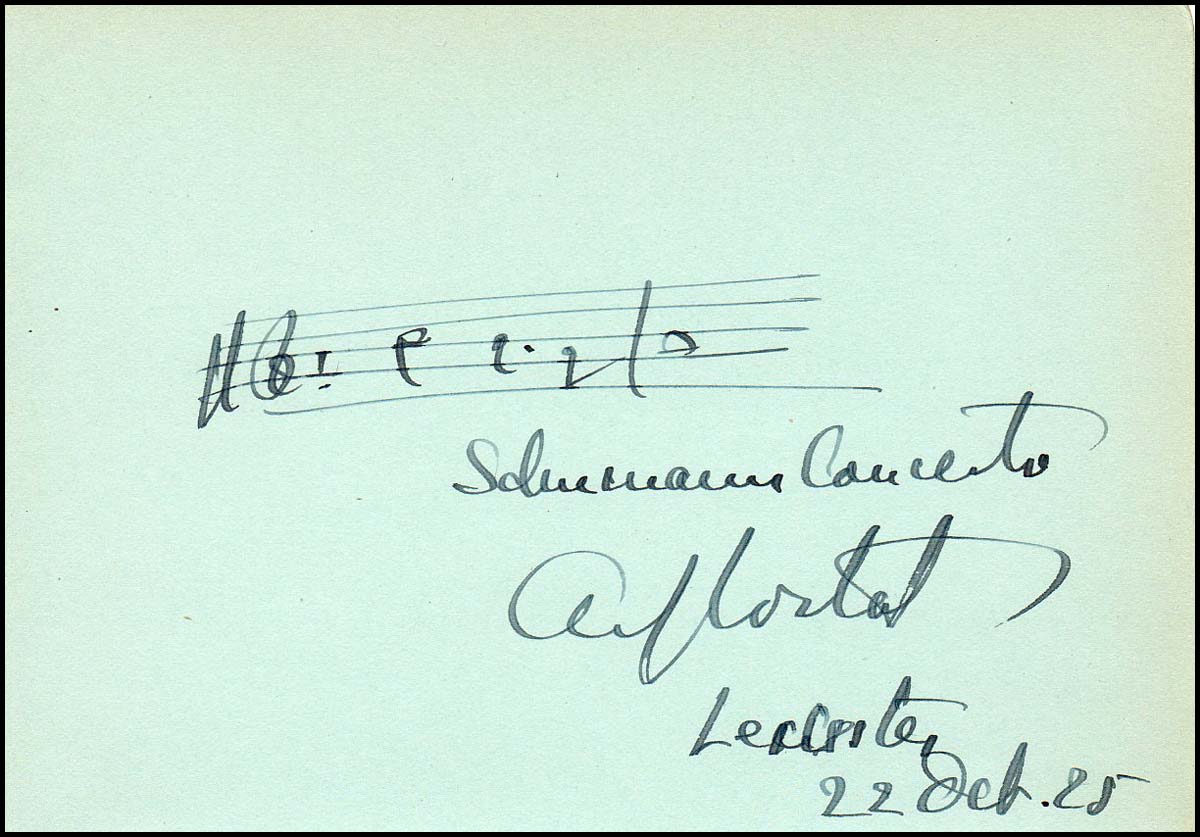 Schumann Concerto
Alf Cortot
Leicester
22 Oct. 25